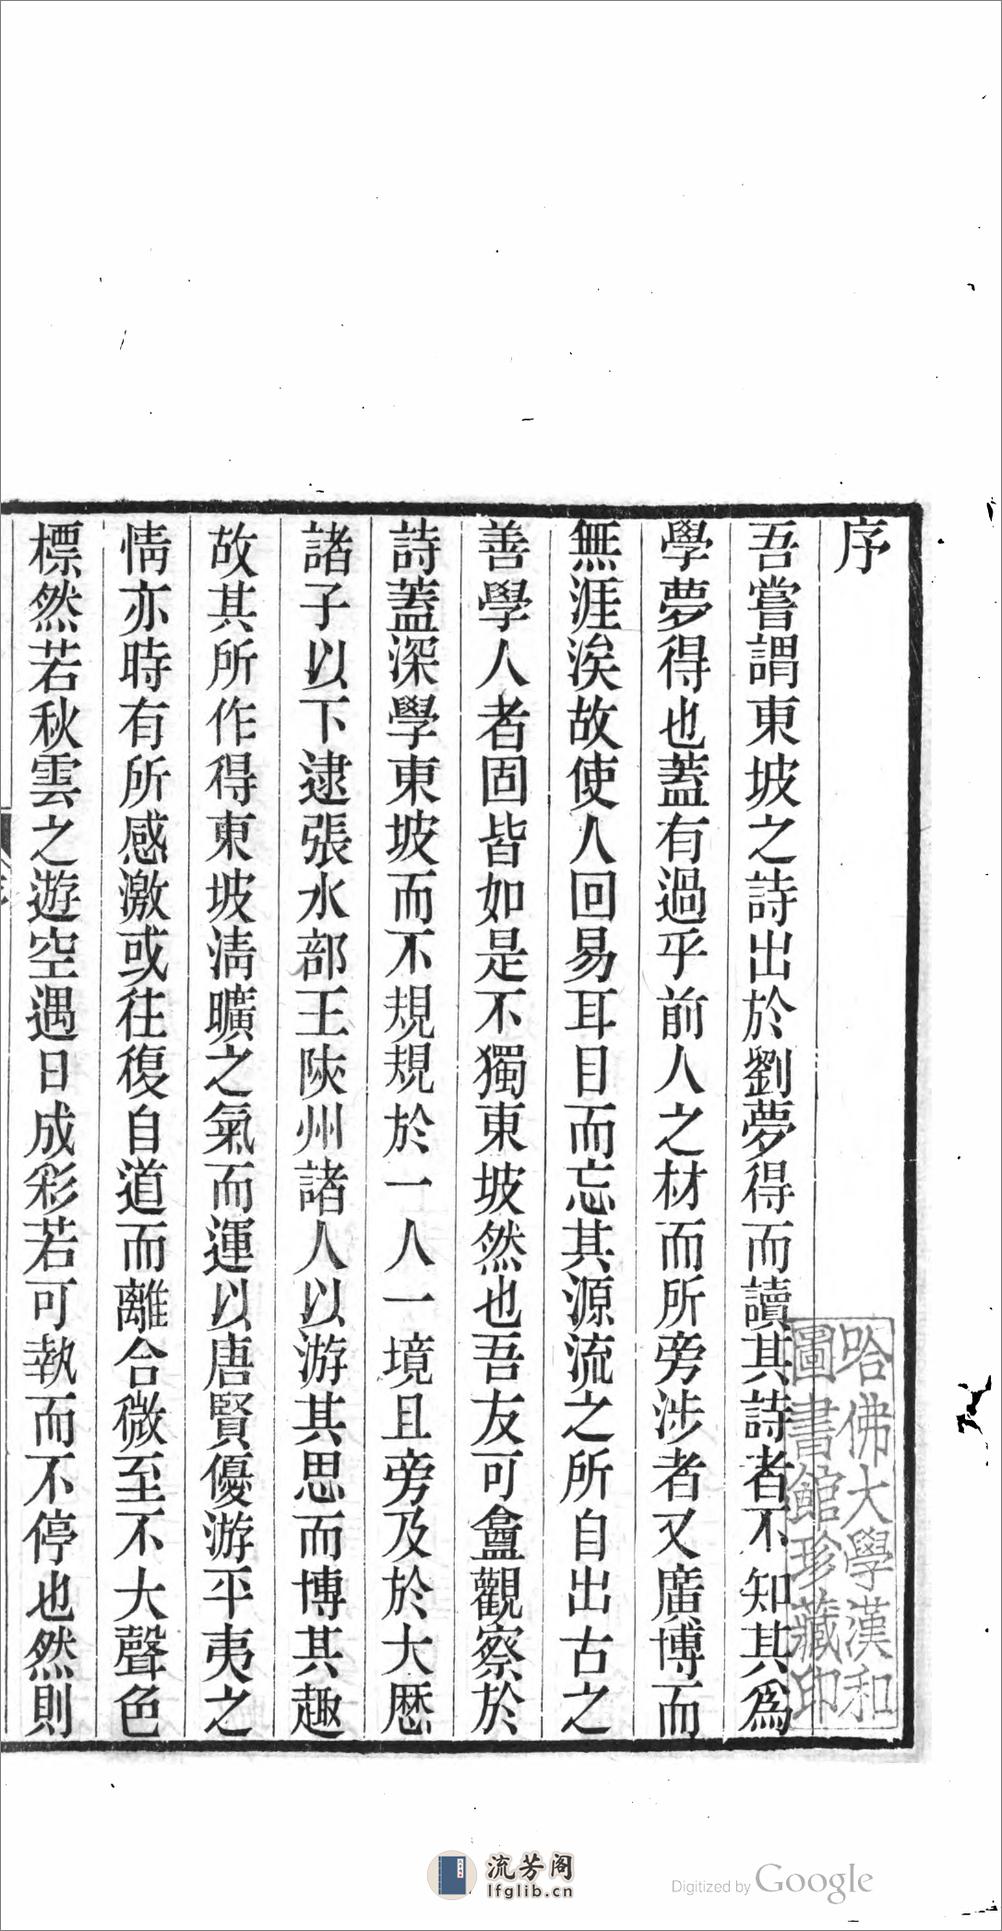 序
吾嘗謂東坡之詩出於劉夢得而讀其詩者不知其為
學夢得也蓋有過乎前人之材而所旁涉者又廣博而
無涯涘故使人回易耳目而忘其源流之所自出古之
善學人者固皆如是不獨東坡然也吾友可盦觀察於
詩蓋深學東坡而不規規於一人一境且旁及於大厯
諸子以下逮張水部王陝州諸人以游其思而博其趣
故其所作得東坡淸曠之氣而運以唐賢優游平夷之
情亦時有所感激或往復自道而離合微至不大聲色
標然若秋雲之遊空遇日成彩若可執而不停也然則
哈佛大學漢和
圖書館珍藏印
流芳阁
lfglib.cn
Digitized by Google